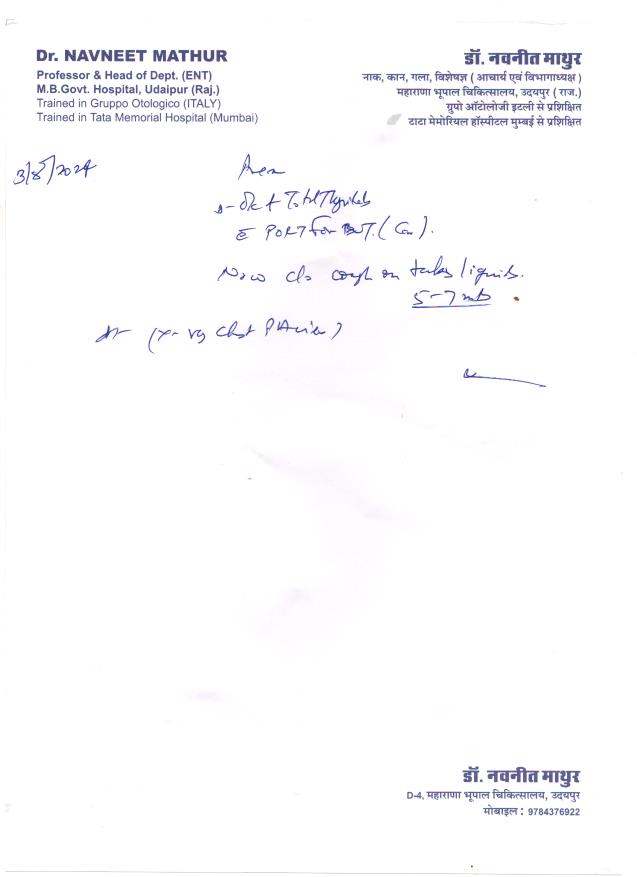 Dr. NAVNEET MATHUR
Professor & Head of Dept. (ENT)
M.B.Govt. Hospital, Udaipur (Raj.)
Trained in Gruppo Otologico (ITALY)
Trained in Tata Memorial Hospital (Mumbai)
डॉ. नवनीत माथुर
नाक, कान, गला, विशेषज्ञ ( आचार्य एवं विभागाध्यक्ष )
महाराणा भूपाल चिकित्सालय, उदयपुर ( राज.)
ग्रुपो ऑटोलोजी इटली से प्रशिक्षित
टाटा मेमोरियल हॉस्पीटल मुम्बई से प्रशिक्षित
3/8/2024
Total
PORT for
Now c/o cough on liquids.
5-7
(X-ray Chest PA view)
डॉ. नवनीत माथुर
D-4, महाराणा भूपाल चिकित्सालय, उदयपुर
मोबाइल : 9784376922